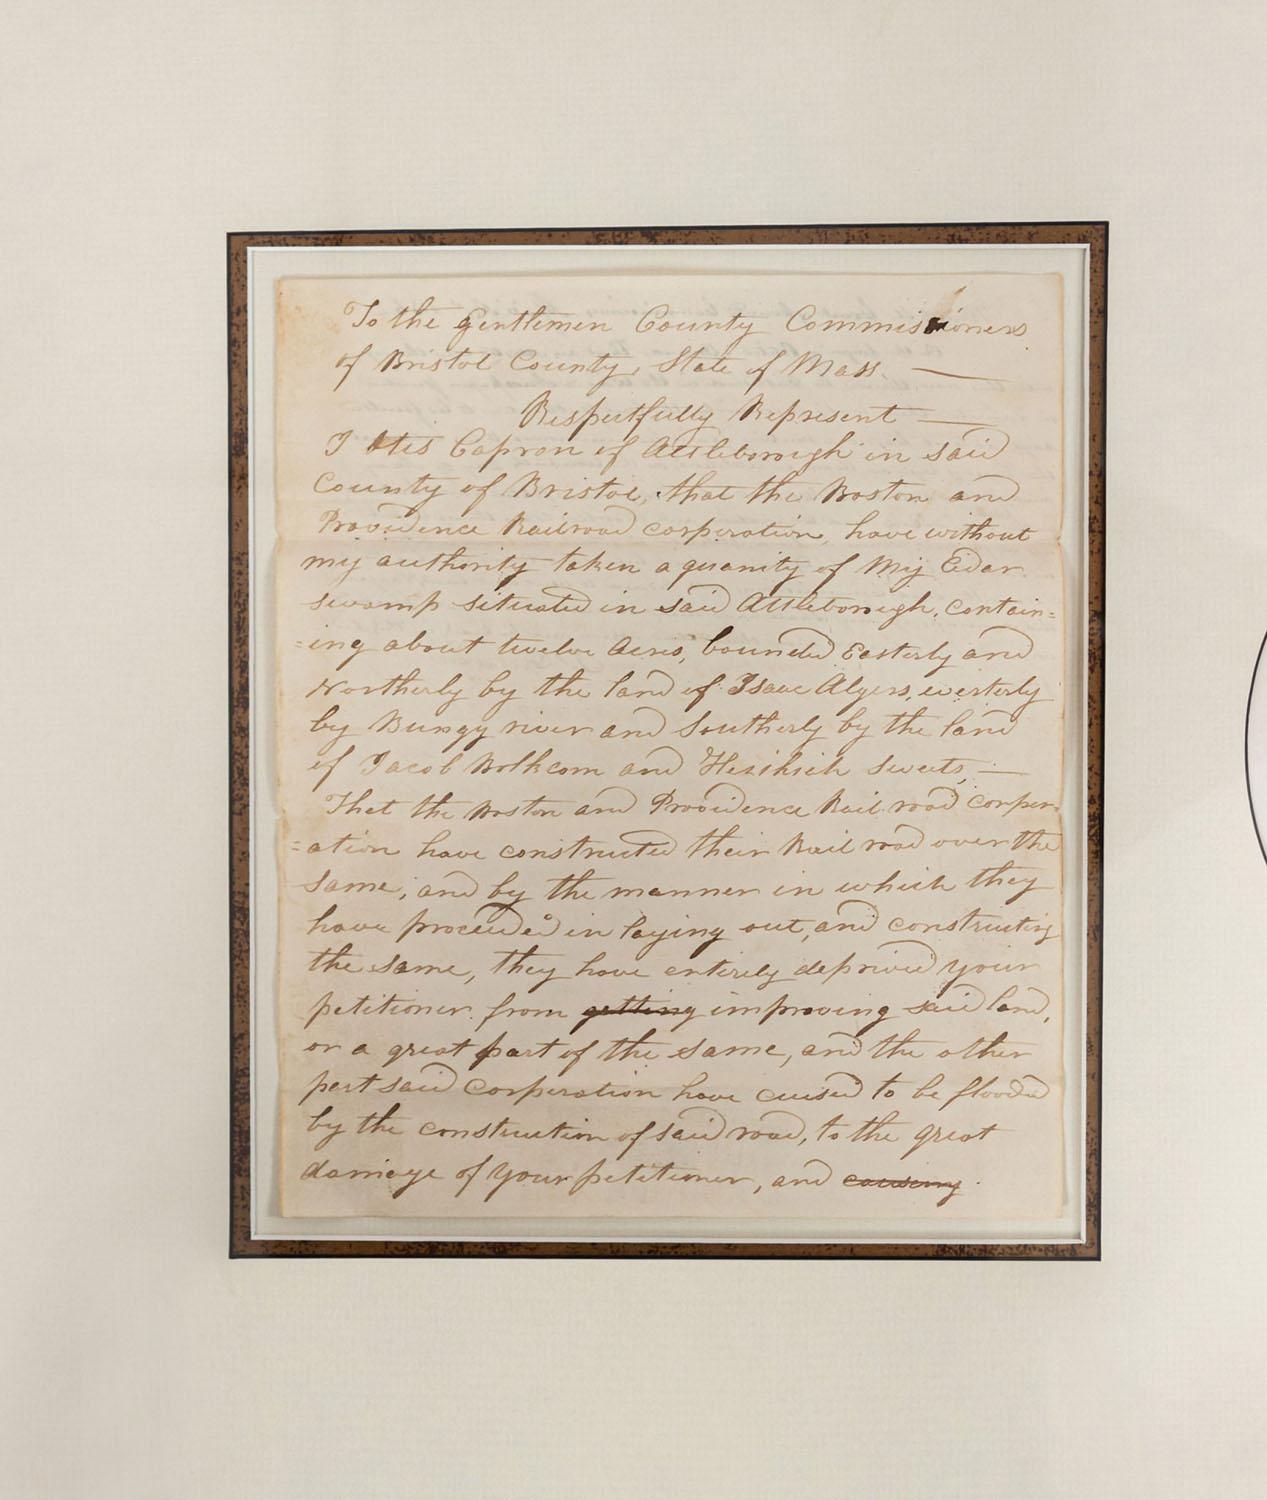 To the Gentlemen County Commissioners
of Bristol County, State of Mass. —
Respectfully Represent —
I Otis Capron of Attleborough in said
County of Bristol, that the Boston and
Providence Railroad corporation, have without
my authority taken a quanity of My Cedar
swamp situated in said Attleborough, contain=
=ing about twelve Acres, bounded Easterly and
Northerly by the land of Isaac Algers, westerly
by Bungy river and Southerly by the land
of Jacob Bolkcom and Hezikiah Sweets, —
That the Boston and Providence Rail road corpor
=ation have constructed their Rail road over the
same; and by the manner in which they
have proceeded in laying out, and constructing
the same, they have entirely deprived your
petitioner from getting improving said land,
or a great part of the same, and the other
part said corporation have caused to be flooded
by the construction of said road, to the great
damage of your petitioner, and causing